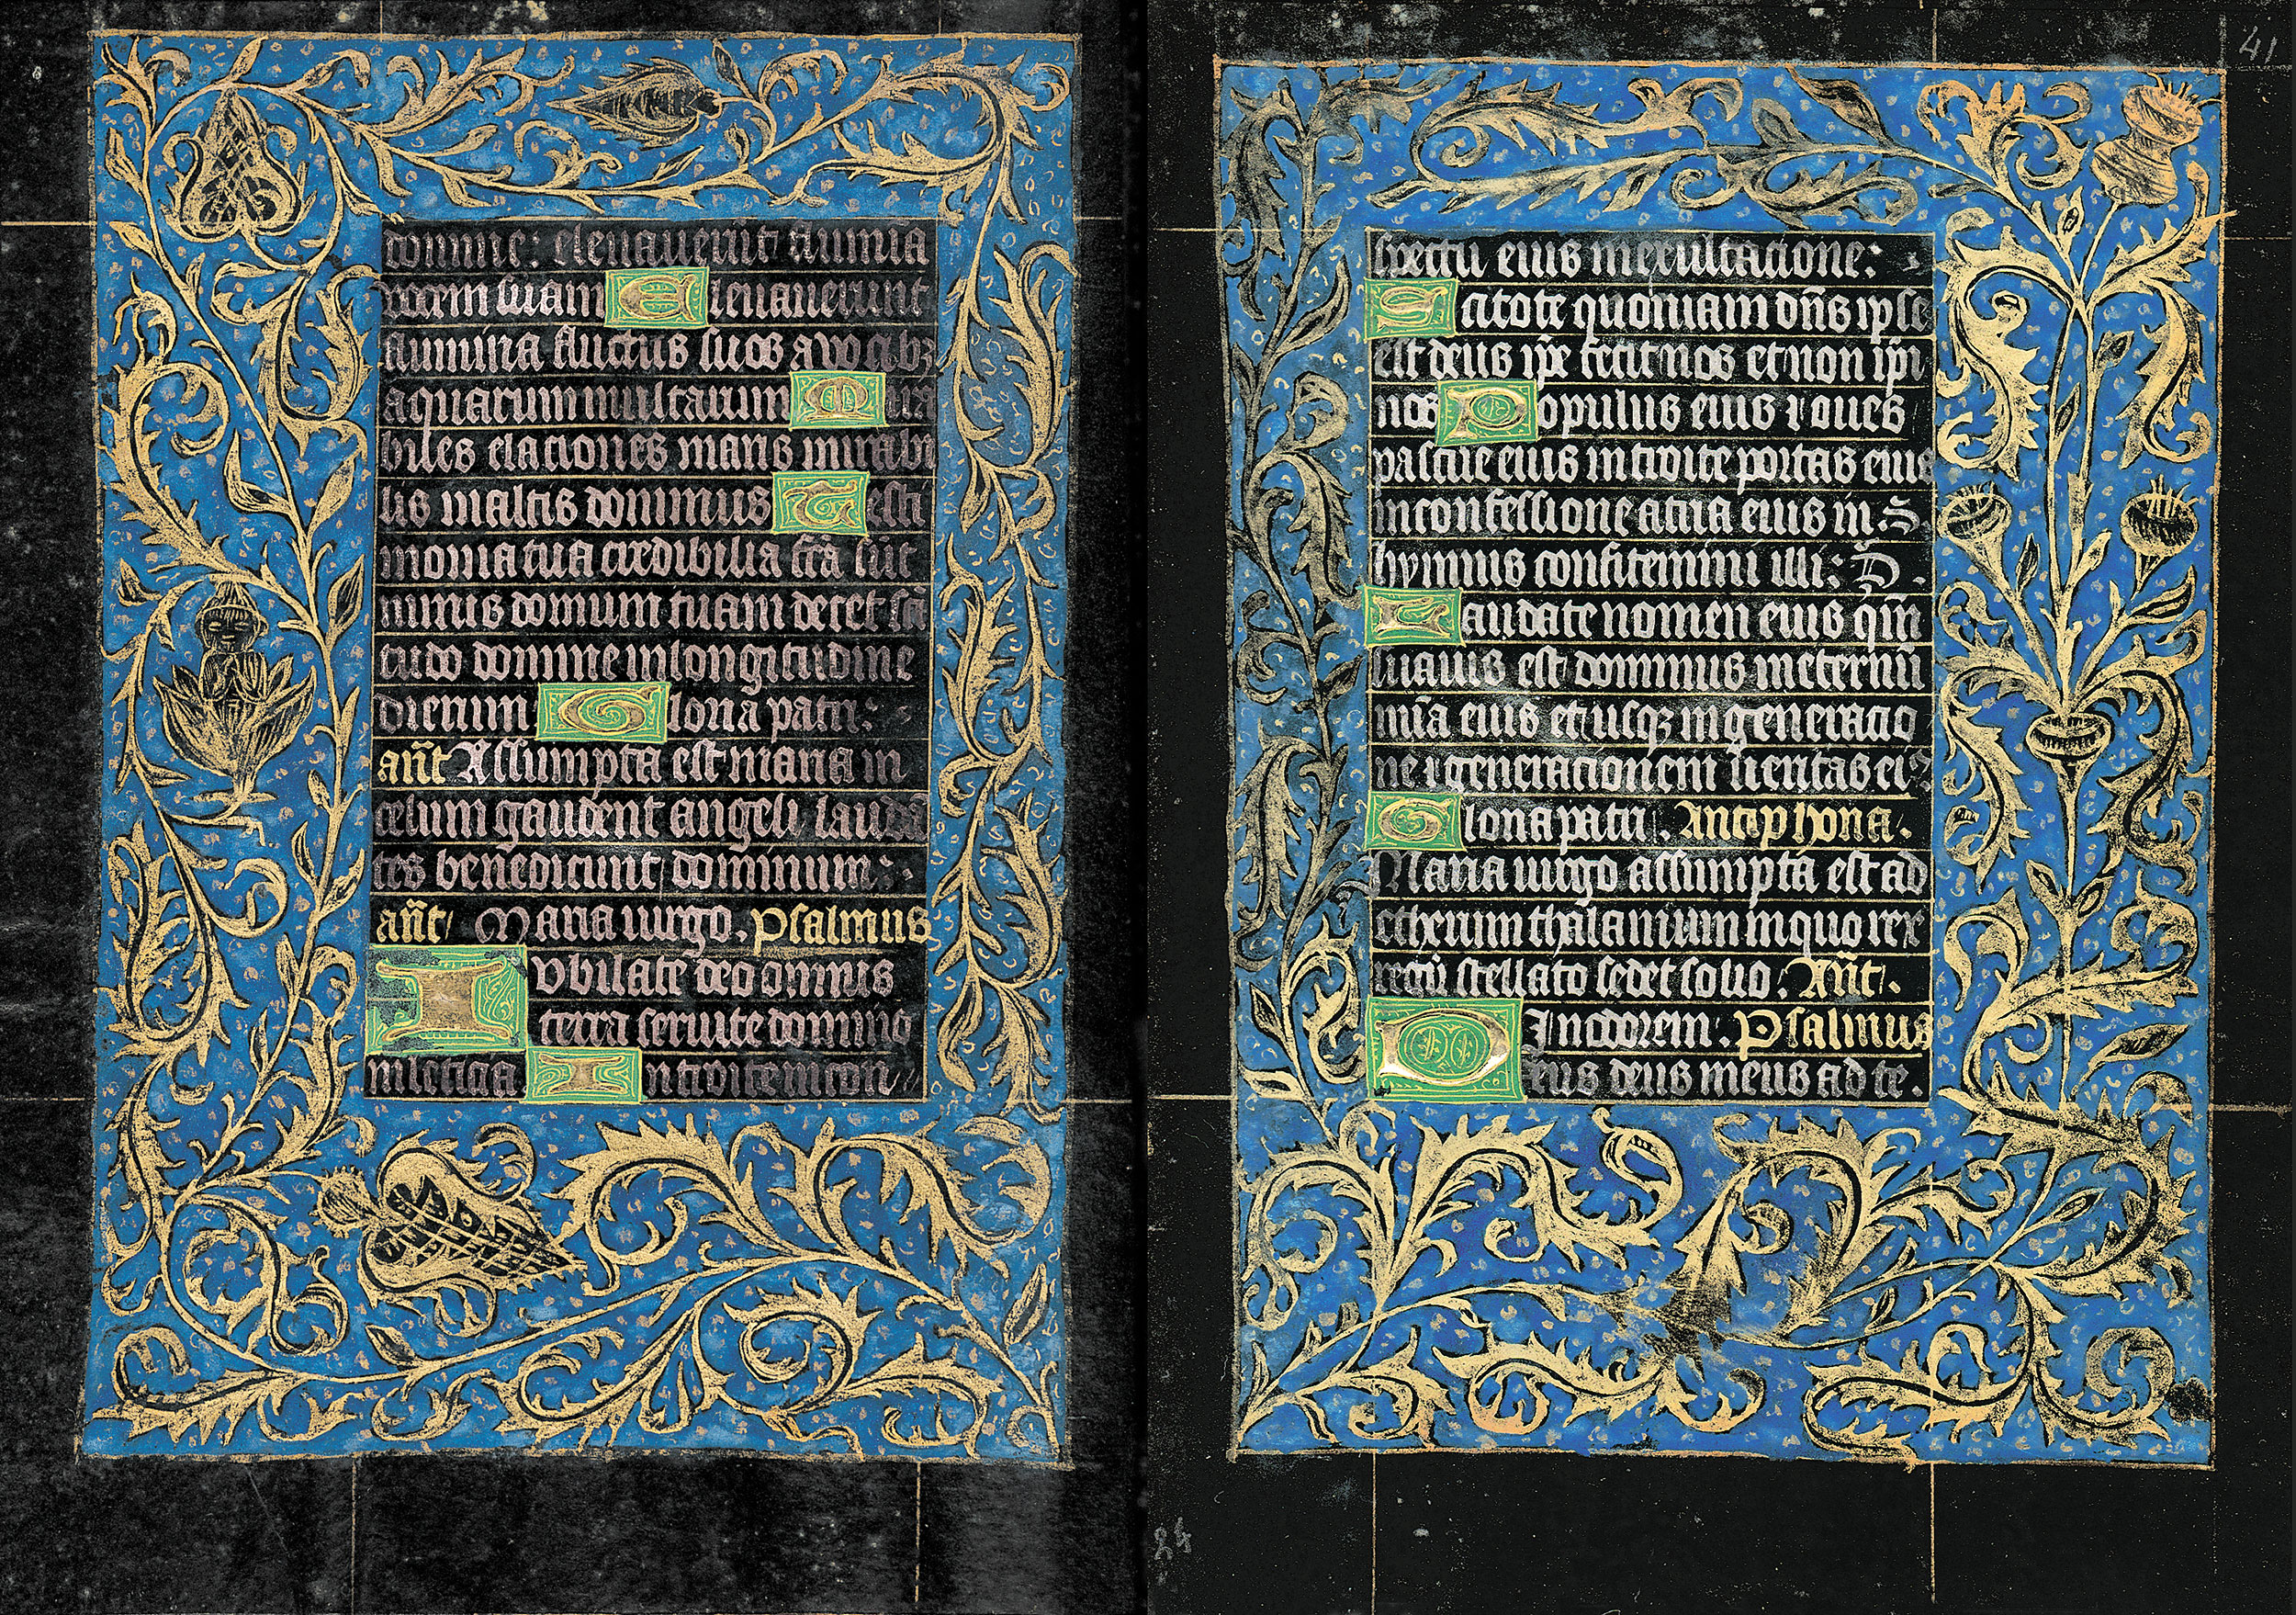 domine: elevaverūt flumīa
vocem suam Elevaverunt
flumina fluctus suos a vocibꝫ
aquarum multarum Mira
biles elaciones maris mirabi
lis in altis dominus Testi
monia tua credibilia fc̄a sūt
nimis domum tuam decet sc̄i
tudo domine in longitudine
dierum Gloria patri:
an̄t Assumpta est maria in
celum gaudent angeli lauda
tes benedicunt dominum:
an̄t Maria virgo. Psalmus
Iubilate deo omnis
terra servite domino
in leticia Introite in con
41
spectu eius in exultacione:
Scitote quoniam dn̄s ipse
est deus ip̄e fecit nos et non ip̄i
nos Populus eius ⁊ oves
pascue eius introite portas eius
in confessione atria eius in .S.
hymnis confitemini illi: D.
Laudate nomen eius qm̄
suavis est dominus in eternū
mīa eius et usqꝫ in generacio
ne ⁊ generacionem veritas ei⁹
Gloria patri. Antiphona.
Maria virgo assumpta est ad
etherium thalamum in quo rex
regū stellato sedet solio. An̄t.
In odorem. Psalmus
Deus deus meus ad te.
84